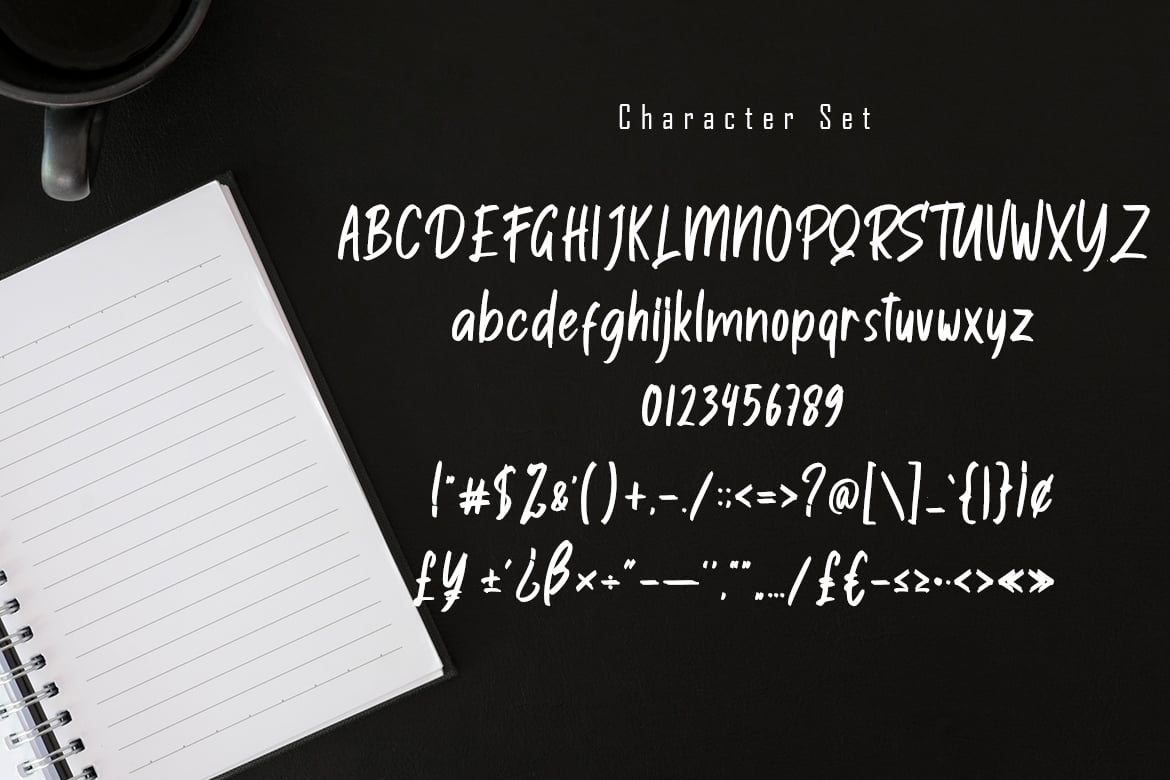 Character Set
ABCDEFGHIJKLMNOPQRSTUVWXYZ
abcdefghijklmnopqrstuvwxyz
0123456789
!"#$%&'()+,-./:;<=>?@[\]_`{|}¡¢
£¥±´¿β×÷”–—‘’‚“”„…/₤€−≤≥•·‹›«»